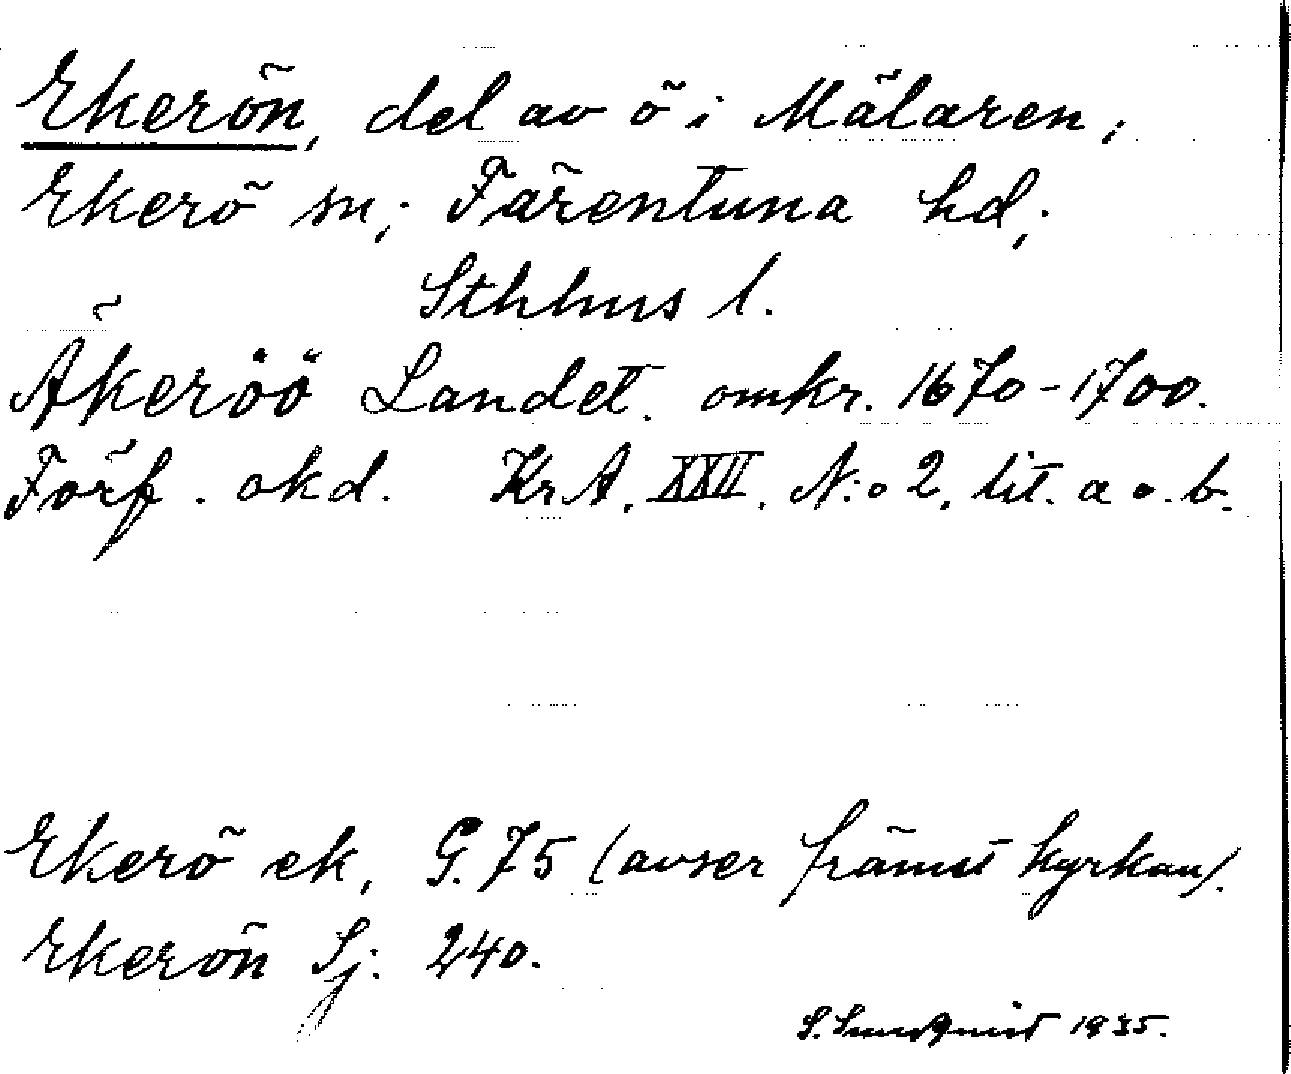 Ekerön, del av ö i Mälaren,
Ekerö sn, Färentuna hd,
Sthlms l.
Åkeröö Landet. omkr. 1670-1700.
Förf. okd. Kr. A. XXII. N:o 2. lit. a o. b.
Ekerö ek. G. 75 (avser främst kyrkan).
Ekerön Sj. 240.
S. Sundquist 1935.